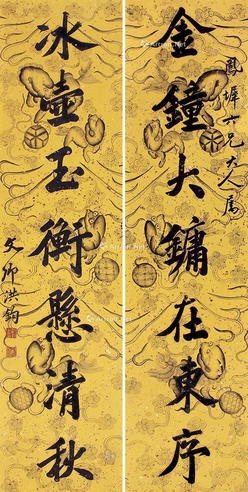 鳳墀六兄大人屬
金鐘大鏞在東序
冰壺玉衡懸清秋
文卿洪鈞